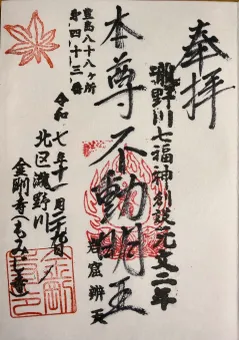 奉拝
瀧野川七福神創設元文二年
本尊不動明王
岩窟辨天
豊島八十八ヶ所
第四十三番
令和七年十一月二十九日
北区瀧野川
金剛寺(もみじ寺)
金剛寺印